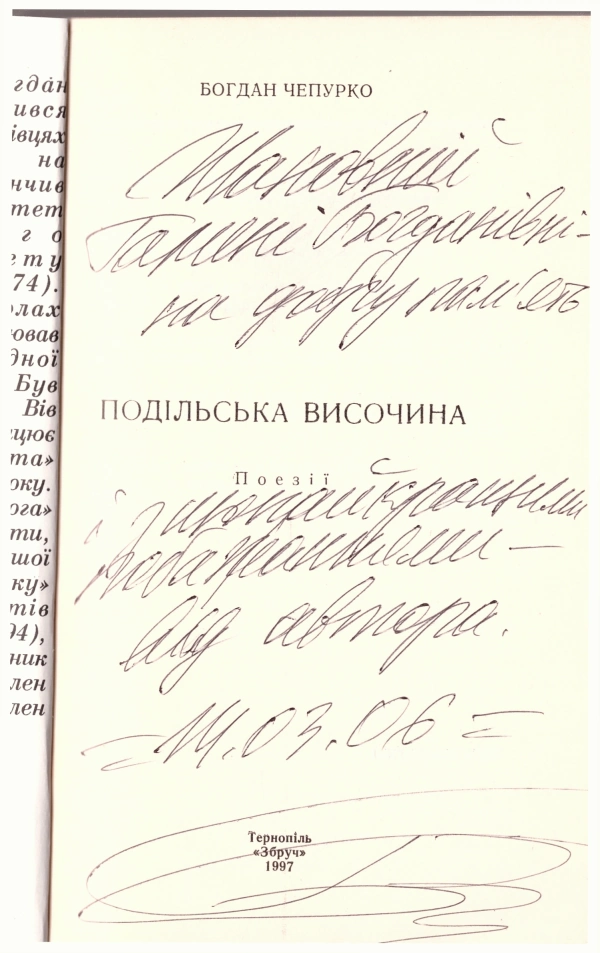 гдан
ився
івцях
на
нчив
тет
г о
ету
74).
олах
ював
дної
Був
Вів
ацює
та»
оку.
ога»
ти,
шої
ку»
тів
94),
ник
лен
лен
БОГДАН ЧЕПУРКО
Шановній
Галині Богданівні –
на добру пам'ять
ПОДІЛЬСЬКА ВИСОЧИНА
Поезії
і з щонайкращими
побажаннями –
від автора.
03.06
Тернопіль
«Збруч»
1997